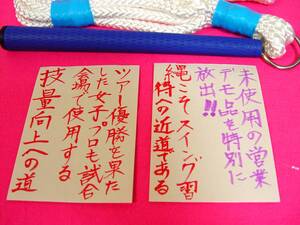 未使用の営業
デモ品を特別に
放出!!
縄こそスイング習
得への近道である
ツアー優勝を果た
した女子プロも試合
会場で使用する
技量向上への道